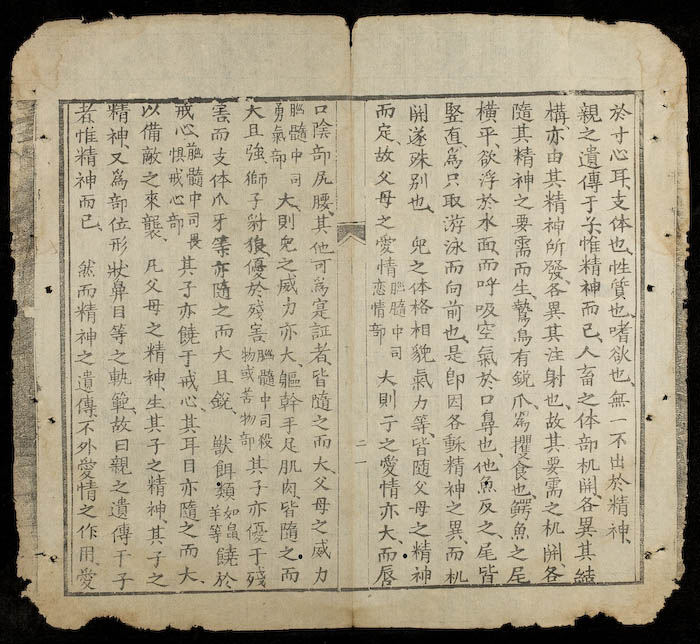 於寸心耳、支体也、性質也、嗜欲也、無一不出於精神、
親之遺傳于子、惟精神而已、人畜之体部机関、各異其結
構、亦由其精神所發、各異其注射也、故其要需之机関、各
隨其精神之要需而生、鷙鳥有鋭爪、為攫食也、鰐魚之尾
橫平、欲浮於水面、而呼吸空氣於口鼻也、他魚反之、尾皆
竪直、為只取游泳而向前也、是即因各動精神之異、而机
関遂殊別也、 兒之体格相貌氣力等、皆随父母之精神
而定、故父母之愛情 脳髓中司恋情部 大則子之愛情亦大、而唇
二一
口陰部尻腰、其他可為寔証者、皆隨之而大、父母之威力
脳髓中司勇氣部 大、則兒之威力亦大、軀幹手足肌肉、皆隨之而
大且強、獅子豺狼、優於殘害 脳髓中司殺物或苦物部 其子亦優于殘
害、而支体爪牙等亦隨之而大且鋭、 獣餌類 如羊等 饒於
戒心 脳髓中司畏惧戒心部 其子亦饒于戒心、其耳目亦隨之而大、
以備敵之來襲、 凡父母之精神、生其子之精神、其子之
精神、又為部位形狀鼻目等之軌範、故曰親之遺傳于子
者、惟精神而已、 然而精神之遺傳、不外愛情之作用、愛